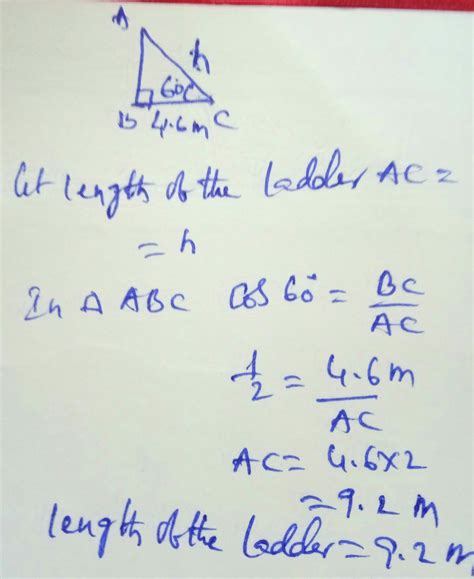 A
h
60°C
B 4.6m C
let length of the ladder AC =
= h
In Δ ABC cos 60° = BC
AC
1/2 = 4.6m
AC
AC = 4.6×2
= 9.2 m
length of the ladder = 9.2 m